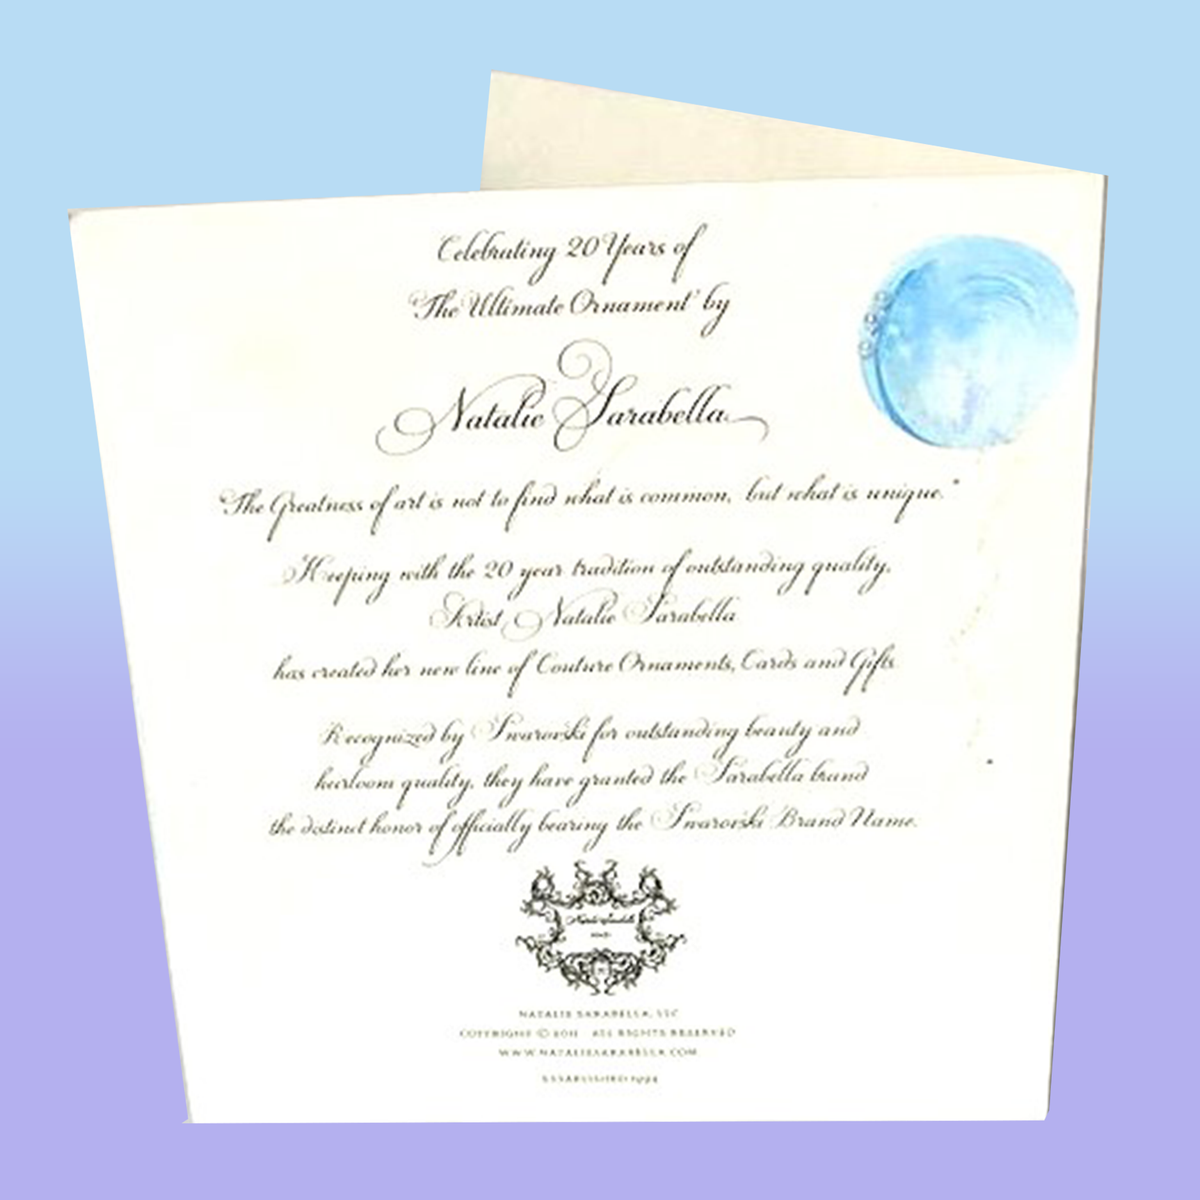 Celebrating 20 Years of
'The Ultimate Ornament' by
Natalie Sarabella
"The Greatness of art is not to find what is common, but what is unique."
Keeping with the 20 year tradition of outstanding quality,
Artist Natalie Sarabella
has created her new line of Couture Ornaments, Cards and Gifts.
Recognized by Swarovski for outstanding beauty and
heirloom quality, they have granted the Sarabella brand
the distinct honor of officially bearing the Swarovski Brand Name.
Natalie Sarabella
NATALIE SARABELLA, LLC
COPYRIGHT © 2011 ALL RIGHTS RESERVED
WWW.NATALIESARABELLA.COM
ESTABLISHED